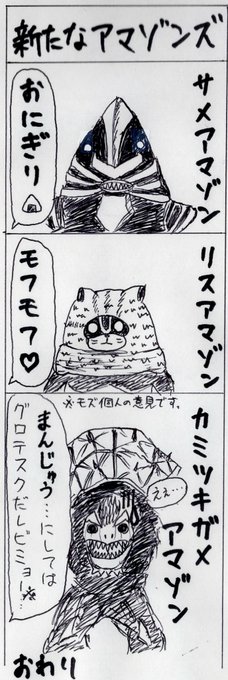 新たなアマゾンズ
サメアマゾン
おにぎり
リスアマゾン
モフモフ♡
※モズ個人の意見です。
カミツキガメ
アマゾン
ええ…
まんじゅう…にしては
グロテスクだしビミョー…※
おわり